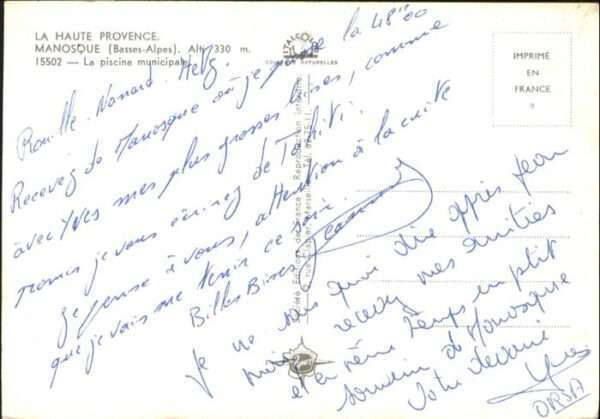 LA HAUTE PROVENCE.
MANOSQUE (Basses-Alpes). Alt. 330 m.
15502 — La piscine municipale.
COULEURS NATURELLES
IMPRIMÉ
EN
FRANCE
Reproduction interdite
Recevez de Manosque où je passe la 48°00
avec Yves mes plus grosses bises, comme
promis je vous écrirez de Tahiti.
Je pense à vous, attention à la cuite
que je vais me tenir ce soir.
Billes Bises
Je ne sais quoi dire après Jean
mais recevez mes amitiés
et en même temps un ptit
souvenir de Manosque
Votre
Yves
ORSA